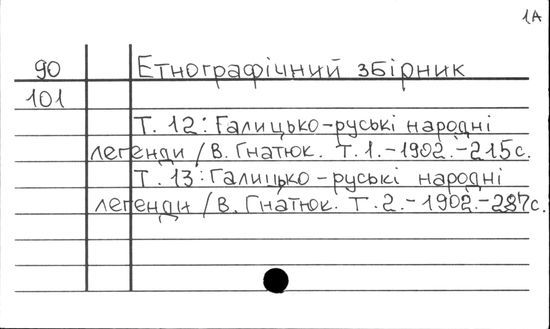 1А
90 Етнографічний збірник
101
Т. 12: Галицько-руські народні
легенди / В. Гнатюк. Т. 1. - 1902. - 215 с.
Т. 13: Галицько-руські народні
легенди / В. Гнатюк. Т. 2. - 1902. - 287 с.